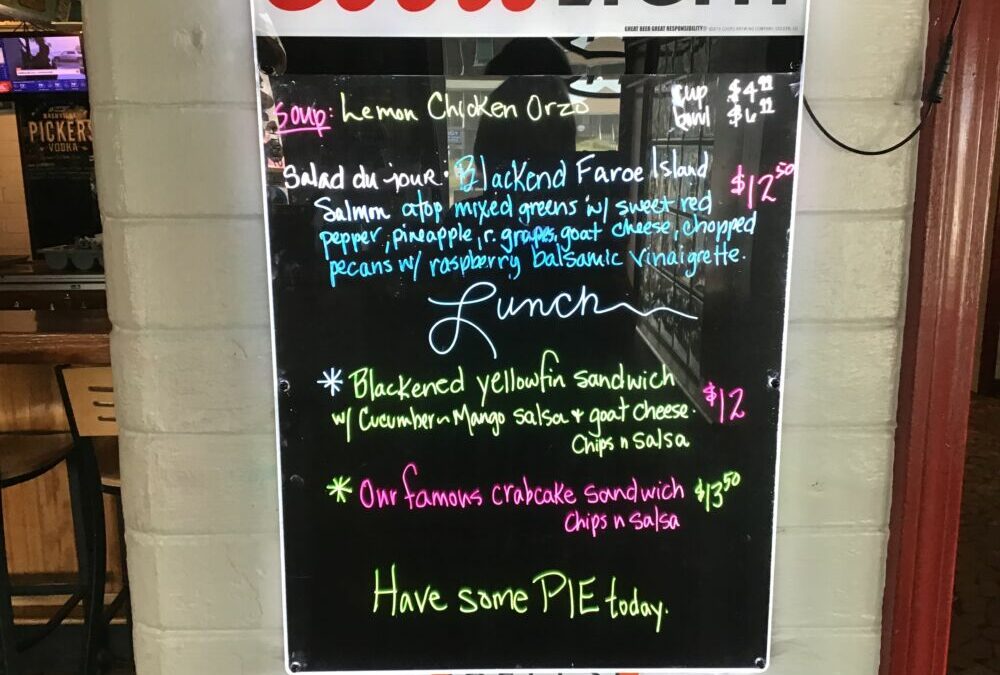 Coors LIGHT
GREAT BEER GREAT RESPONSIBILITY
Soup: Lemon Chicken Orzo
cup $4.99
bowl $6.99
Salad du jour. Blackend Faroe Island
Salmon atop mixed greens w/ sweet red
pepper, pineapple, r. grapes, goat cheese, chopped
pecans w/ raspberry balsamic vinaigrette.
$12.50
Lunch
* Blackened yellowfin sandwich
w/ Cucumber ~ Mango salsa + goat cheese.
Chips n Salsa
$12
* Our famous crabcake sandwich $13.50
Chips n Salsa
Have some PIE today.
PICKERS
VODKA